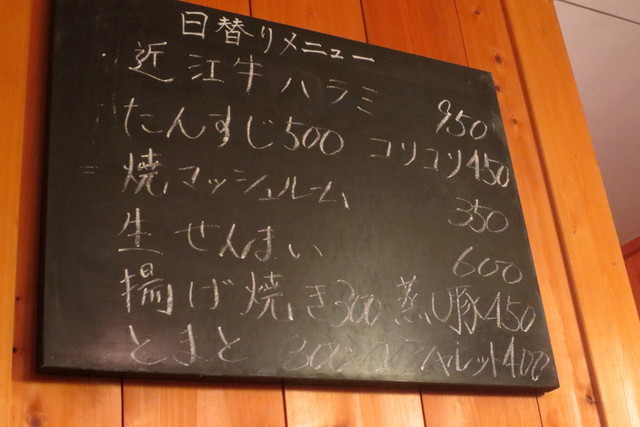 日替りメニュー
近江牛ハラミ 950
たんすじ500 コリコリ450
焼マッシュルーム 350
生せんまい 600
揚げ焼き300 蒸し豚450
とまと 300 シャレット400